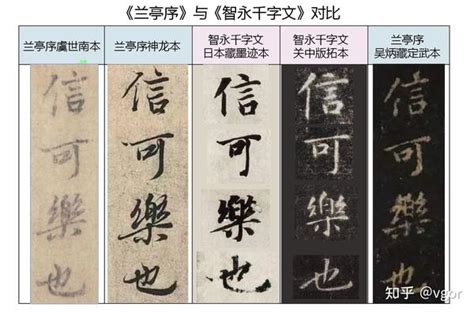 《兰亭序》与《智永千字文》对比
兰亭序虞世南本
兰亭序神龙本
智永千字文
日本藏墨迹本
智永千字文
关中版拓本
兰亭序
吴炳藏定武本
信可樂也
信可樂也
信可樂也
信可樂也
信可樂也
知乎 @vgor